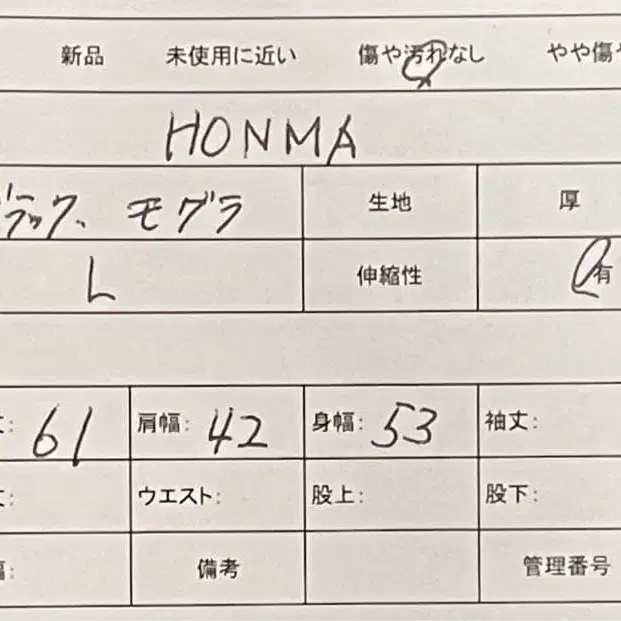 新品 未使用に近い 傷や汚れなし やや傷や
HONMA
ブラック、モグラ 生地 厚
L 伸縮性 有
丈: 61 肩幅: 42 身幅: 53 袖丈:
丈: ウエスト: 股上: 股下:
幅: 備考 管理番号